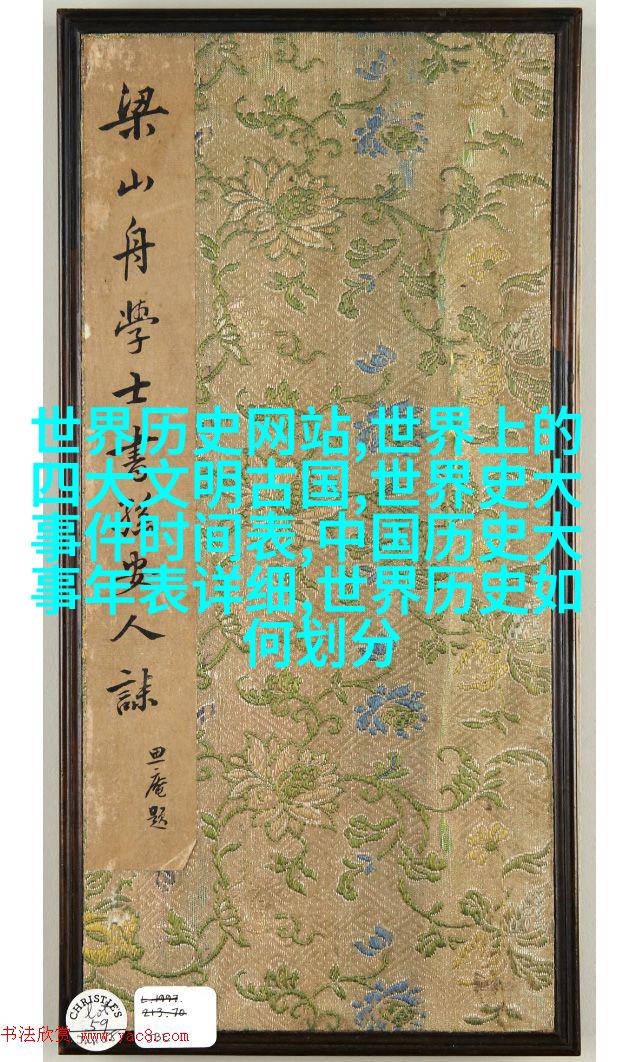 梁山舟學士書孫安人誄
庵題
世界历史网站,世界上的
四大文明古国,世界史大
事件时间表,中国历史大
事年表详细,世界历史如
何划分
CHRISTIE'S
Lot
59
L.1997.
213.70
书法欣赏 www.yac8.com